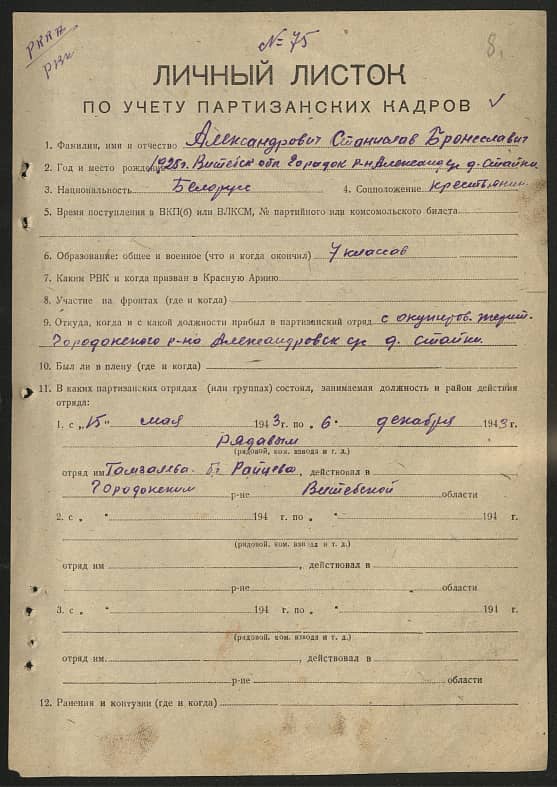 РККА
РВК
№ 75
8.
ЛИЧНЫЙ ЛИСТОК
ПО УЧЕТУ ПАРТИЗАНСКИХ КАДРОВ
1. Фамилия, имя и отчество Александрович Станислав Брониславич
2. Год и место рождения 1925г. Витебск обл Городок р-н, Александ с/с д. Стайки
3. Национальность Белорус 4. Соцположение крестьянин
5. Время поступления в ВКП(б) или ВЛКСМ, № партийного или комсомольского билета
6. Образование: общее и военное (что и когда окончил) 7 классов
7. Каким РВК и когда призван в Красную Армию
8. Участие на фронтах (где и когда)
9. Откуда, когда и с какой должности прибыл в партизанский отряд с окупиров. террит.
Городокского р-на Александровск с/с д. Стайки
10. Был ли в плену (где и когда)
11. В каких партизанских отрядах (или группах) состоял, занимаемая должность и район действия
отряда:
1. с „15" мая 1943 г. по „6" декабря 1943 г.
рядавым
(рядовой, ком. взвода и т. д.)
отряд им бр Райцева, действовал в
Городокским р-не Витебской области
2. с „ " 194 г. по „ " 194 г.
(рядовой, ком. взвода и т. д.)
отряд им , действовал в
р-не области
3. с „ " 194 г. по „ " 194 г.
(рядовой, ком. взвода и т. д.)
отряд им. , действовал в
р-не области
12. Ранения и контузии (где и когда)